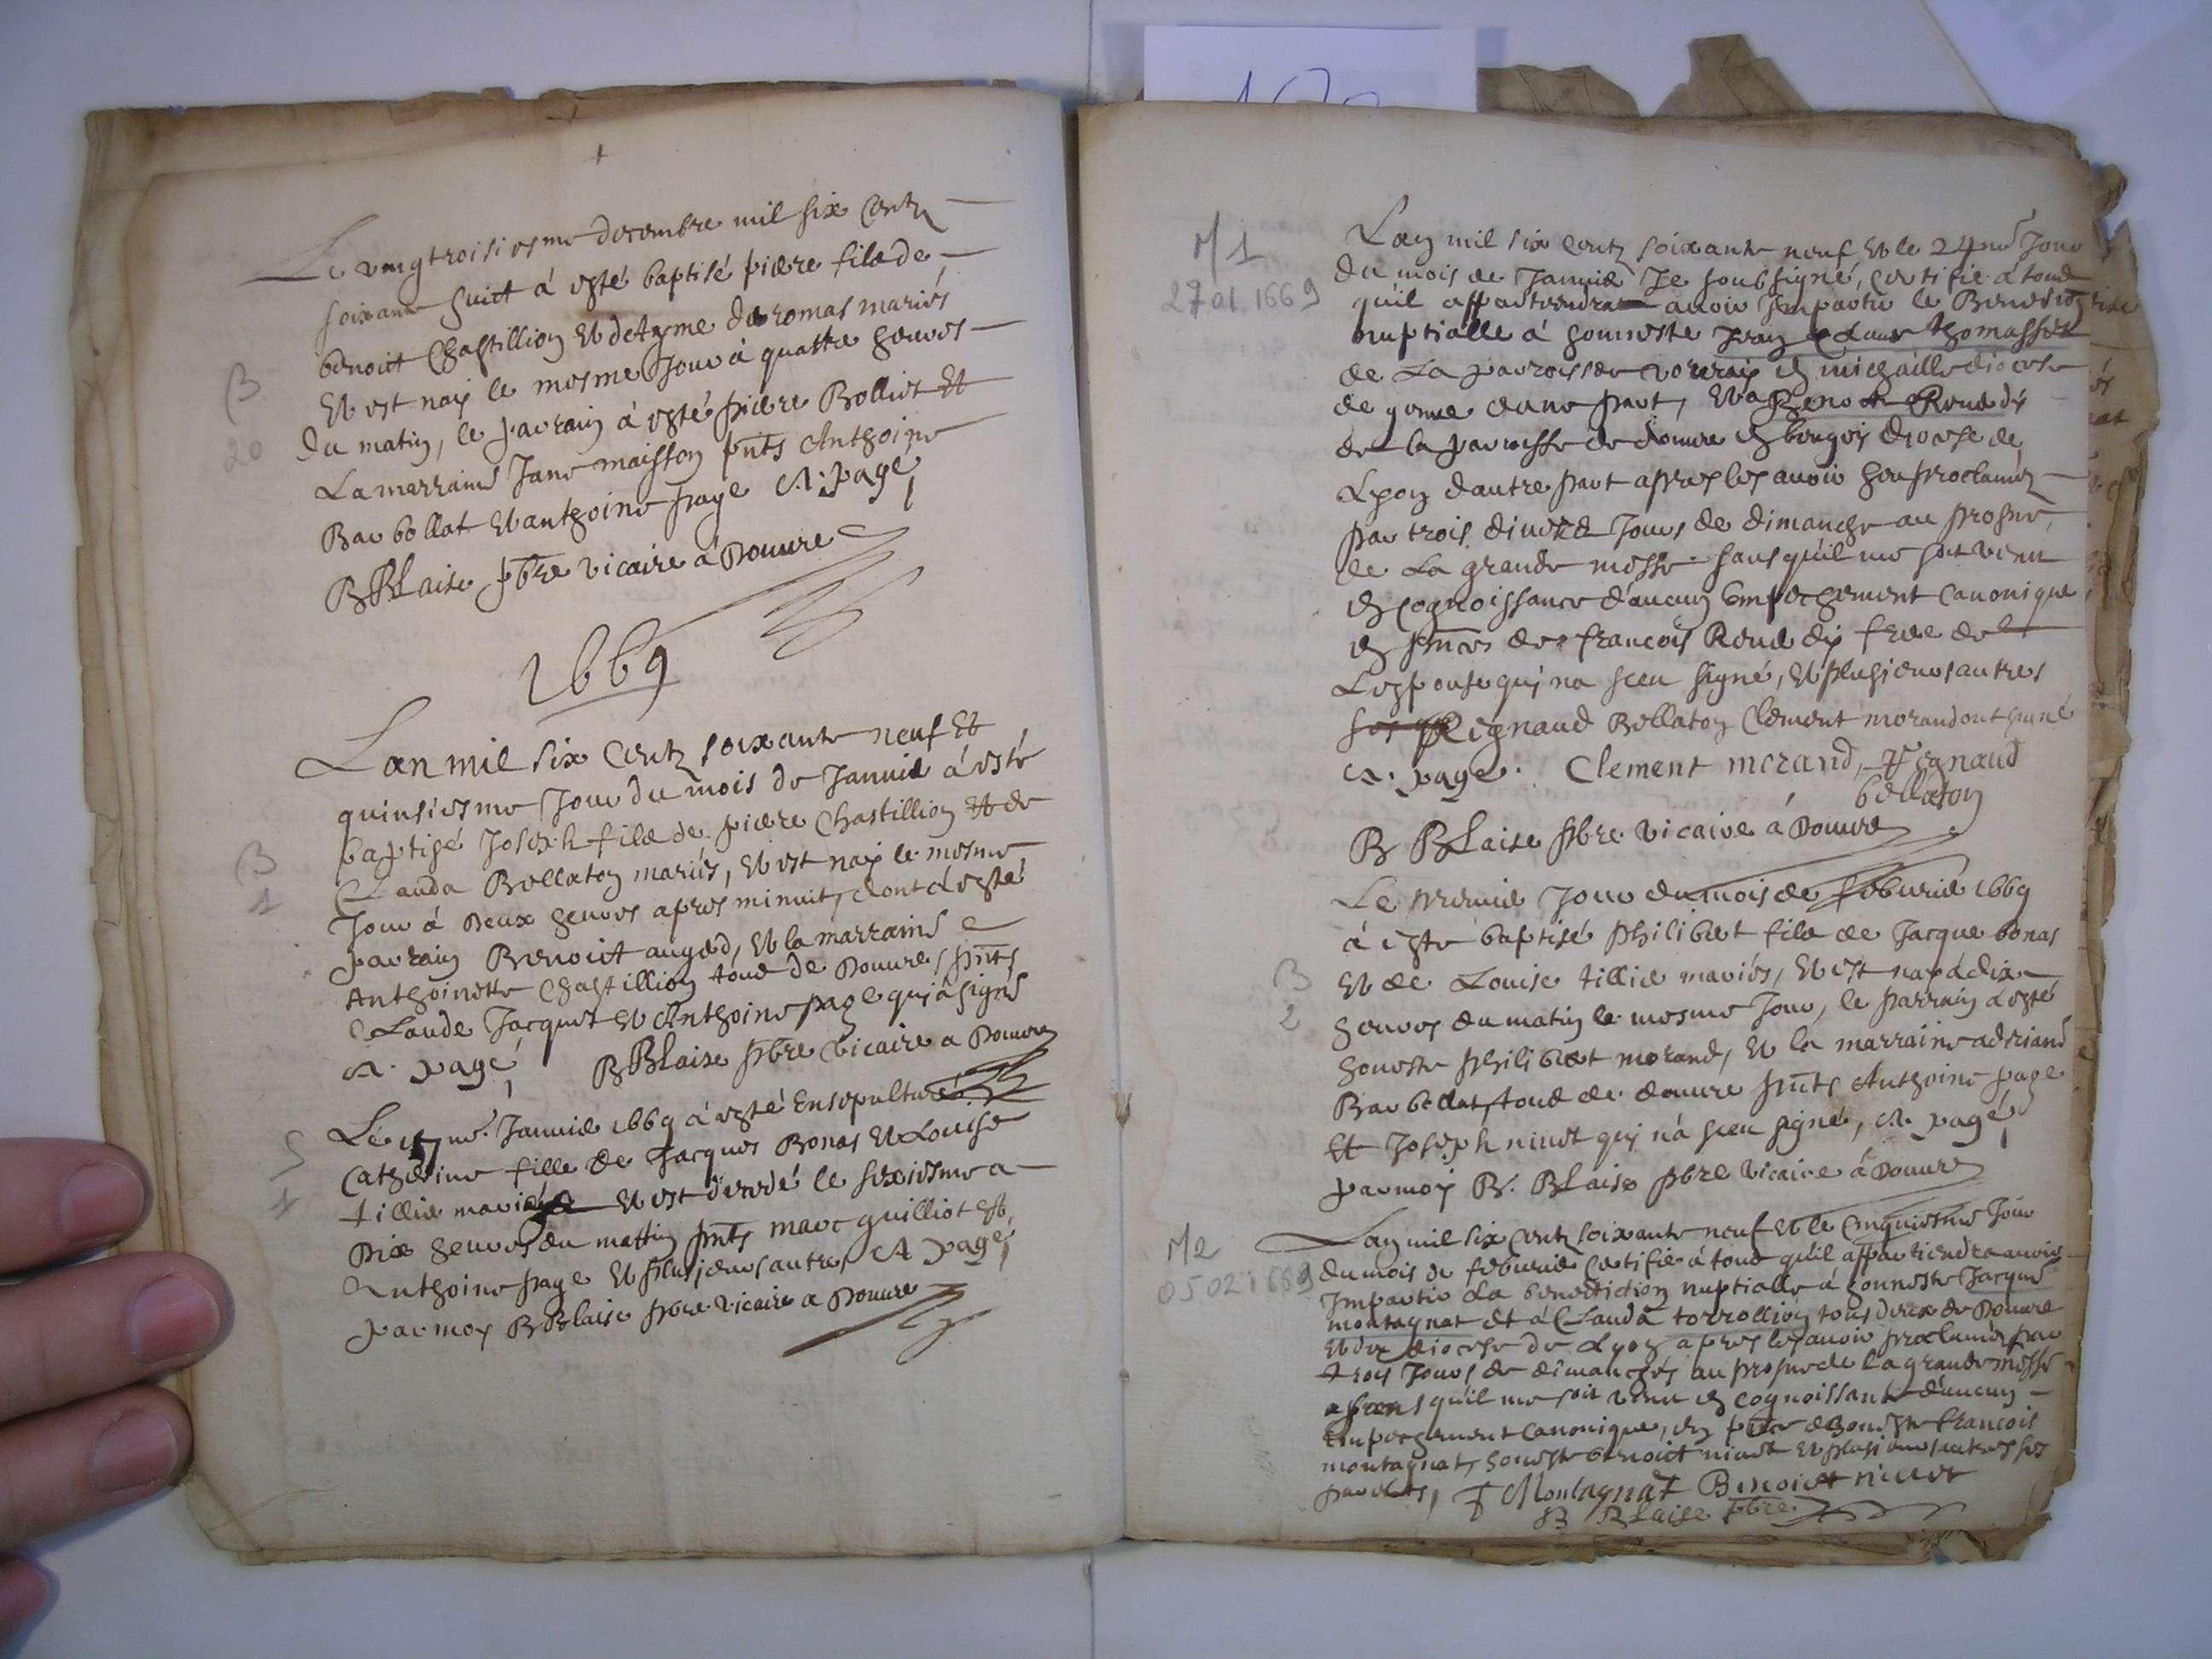 Le vingtroisiesme decembre mil six centz
soixante huict à esté baptisé piere filz de
benoict Chastillion et de
et est nay le mesme Jour à quattre heures
du matin, le parrain à esté piere Bolliet et
La marraine Jane maisson pnts Anthoine
Barbollat et anthoine page A. page
B Blaise pbre vicaire à Douvre
1669
Lan mil six centz soixante neuf et
quinsiesme Jour du mois de Janvier à esté
baptisé Joseph filz de piere Chastillion et de
Clauda Bellaton mariés, et est nay le mesme
Jour à Deux heures apres minuit, dont à esté
parrain Benoict auged, et la marraine
Anthoinette Chastillion tous de Douvre, pnts
Claude Jacquet et Anthoine page qui à signé
A. page B Blaise pbre vicaire a Douvre
Le 17me Janvier 1669 à esté Ensepulturé
Catherine fille de Jacques Bonas et Louise
tillier mariés et est decedé le sexiesme a
Dix heures du mattin pnts marc guilliot et
Anthoine page et plusieurs autres A page
par moy B Blaise pbre vicaire a Douvre
B
20
B
1
S
1
M 1
27 01 1669
Lan mil six centz soixante neuf et le 24me Jour
du mois de Janvier Je soubsigné, certifie à tous
quil appartiendra avoir Impartir le Benediction
nuptialle à honneste Jean Claude thomasset
de La parroisse vouvray en michaille diocese
de geneve dune part, et a Benoite Reuddy
de la parroisse de douvre en beugey diocese de
Lyon dautre part apres les avoir heu proclamez
par trois divers Jours de dimanche au prosne
de La grande messe sans quil me soit venu
en cognoissance d'aucun empechement canonique
en pnce de francois Reud dy frere de
Lespouse qui na sceu signé, et plusieurs autres
Regnaud Bellaton Clement morand ont signé
A. page. Clement morand, Regnaud
bellaton
B Blaise pbre vicaire à Douvre
B
2
Le premier Jour du mois de feburier 1669
à esté baptisé philibert filz de Jacque bonas
et de Louise tillier mariés, et est nay à dix
heures du matin le mesme Jour, le parrain à esté
honeste philibert morand, et la marraine adriane
Barbollat, tous de douvre pnts Anthoine page
et Joseph nivet qui n'à sceu signé, A. page
par moy B. Blaise pbre vicaire à Douvre
M 2
05 02 1669
Lan mil six centz soixante neuf et le cinquiesme Jour
du mois de feburier certifie à tous qu'il appartiendra avoir
Impartir La benediction nuptialle à honneste Jacque
montagnat et à Clauda torrollion tous deux de Douvre
et du diocese de Lyon apres les avoir proclamés par
trois Jours de dimanches au prosne de la grande messe
sans qu'il me soit venu en cognoissance d'aucun
empechement canonique, en pnce de honeste francois
montagnat, honeste benoict nivet et plusieurs autres ses
parents, F Montagnat Benoict nivet
B Blaise pbre